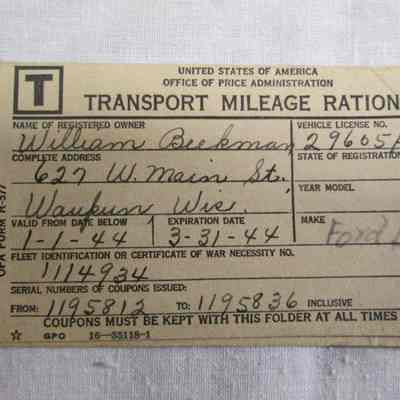 T
UNITED STATES OF AMERICA
OFFICE OF PRICE ADMINISTRATION
TRANSPORT MILEAGE RATION
NAME OF REGISTERED OWNER
William Beekman
VEHICLE LICENSE NO.
29605
COMPLETE ADDRESS
627 W. Main St.
STATE OF REGISTRA
Waupun Wis.
YEAR MODEL
VALID FROM DATE BELOW
1-1-44
EXPIRATION DATE
3-31-44
MAKE
Ford
FLEET IDENTIFICATION OR CERTIFICATE OF WAR NECESSITY NO.
1114934
SERIAL NUMBERS OF COUPONS ISSUED:
FROM: 1195812 TO: 1195836 INCLUSIVE
COUPONS MUST BE KEPT WITH THIS FOLDER AT ALL TIMES
GPO 16-35118-1
OPA FORM R-577